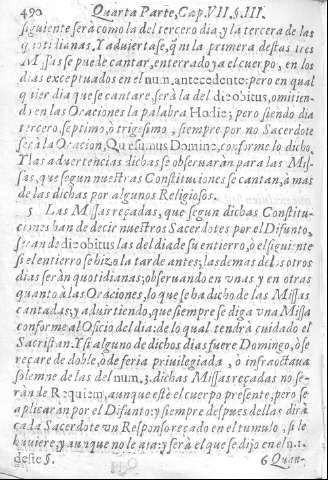 490 Quarta Parte, Cap. VII. §. III.
siguiente serà como la del tercero dia, y la tercera de las
quotidianas. Y adviertase, q̃ ni la primera destas tres
Missas se puede cantar, enterrado ya el cuerpo, en los
dias exceptuados en el num. antecedente: pero en qual
quier dia que se cantare, serà la del die obitus, omitien-
do en las Oraciones la palabra Hodie; pero siendo dia
tercero, septimo, ò trigesimo, siempre por no Sacerdote
serà la Oracion, Quæsumus Domine, conforme lo dicho.
Y las advertencias dichas se observaràn para las Mis-
sas, que segun nuestras Constituciones se cantan, à mas
de las dichas por algunos Religiosos.
5 Las Missas reçadas, que segun dichas Constitu-
ciones han de decir nuestros Sacerdotes por el Difunto,
seràn de die obitus las del dia de su entierro, ò el siguiente
si el entierro se hizo la tarde antes; las demas de los otros
dias seràn quotidianas; observando en unas y en otras
quanto à las Oraciones, lo que se ha dicho de las Missas
cantadas; y advirtiendo, que siempre se diga una Missa
conforme al Oficio del dia: de lo qual tendrà cuidado el
Sacristan. Y si alguno de dichos dias fuere Domingo, ò se
reçare de doble, ò de feria privilegiada, ò infraoctava
solemne de las del num. 3. dichas Missas reçadas no se-
ràn de Requiem, aunque estè el cuerpo presente, pero se
aplicaràn por el Difunto: y siempre despues dellas dirà
cada Sacerdote un Responso reçado en el tumulo, si le
huviere, y aunque no le aya: y serà el que se dijo en el n. 1.
deste §. 6 Quan-